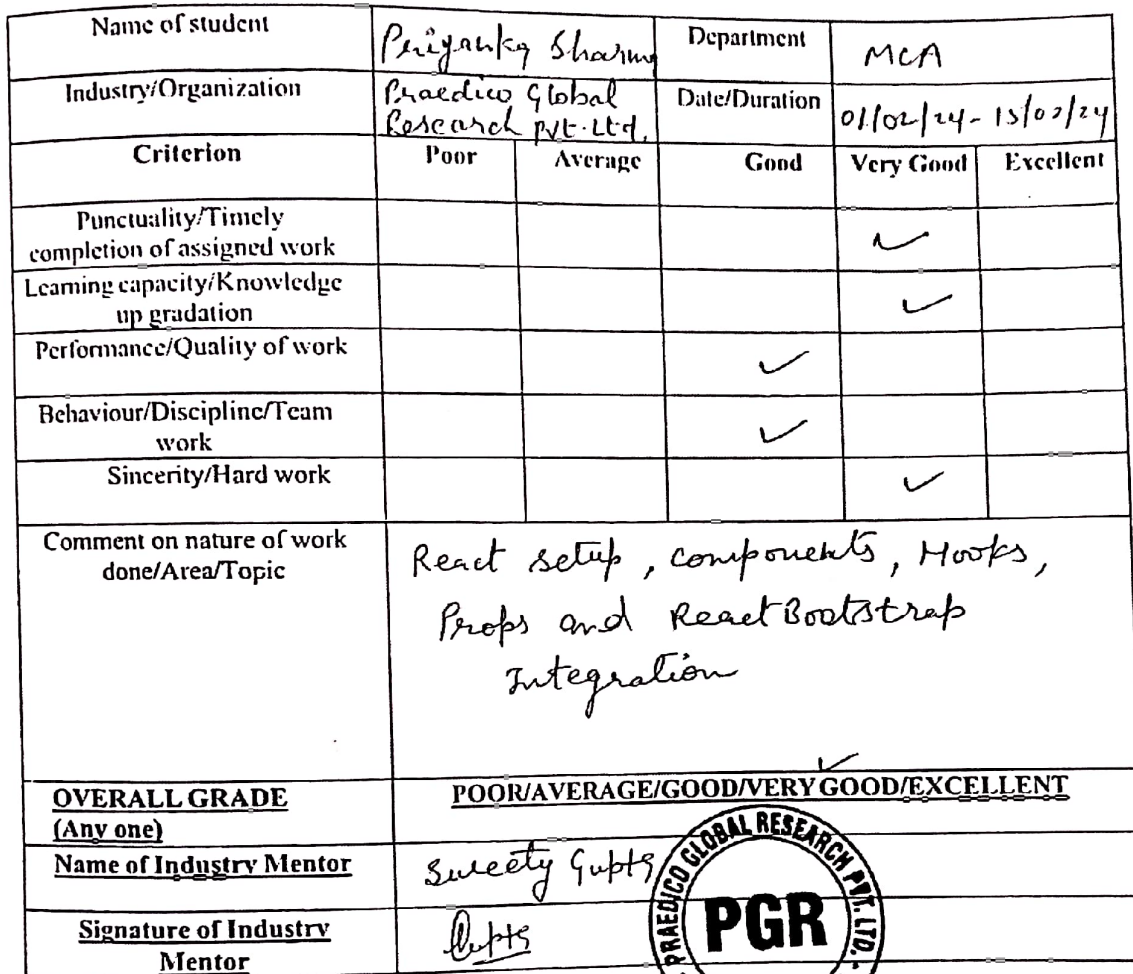 Name of student
Priyanka Sharma
Department
MCA
Industry/Organization
Praedico Global
Research Pvt. Ltd.
Date/Duration
01/02/24 - 15/02/24
Criterion Poor Average Good Very Good Excellent
Punctuality/Timely
completion of assigned work ✓
Learning capacity/Knowledge
up gradation ✓
Performance/Quality of work ✓
Behaviour/Discipline/Team
work ✓
Sincerity/Hard work ✓
Comment on nature of work
done/Area/Topic
React setup, components, Hooks,
Props and React Bootstrap
Integration
✓
OVERALL GRADE
(Any one)
POOR/AVERAGE/GOOD/VERY GOOD/EXCELLENT
Name of Industry Mentor
Sweety Gupta
Signature of Industry
Mentor
Gupta
PRAEDICO GLOBAL RESEARCH PVT. LTD.
PGR